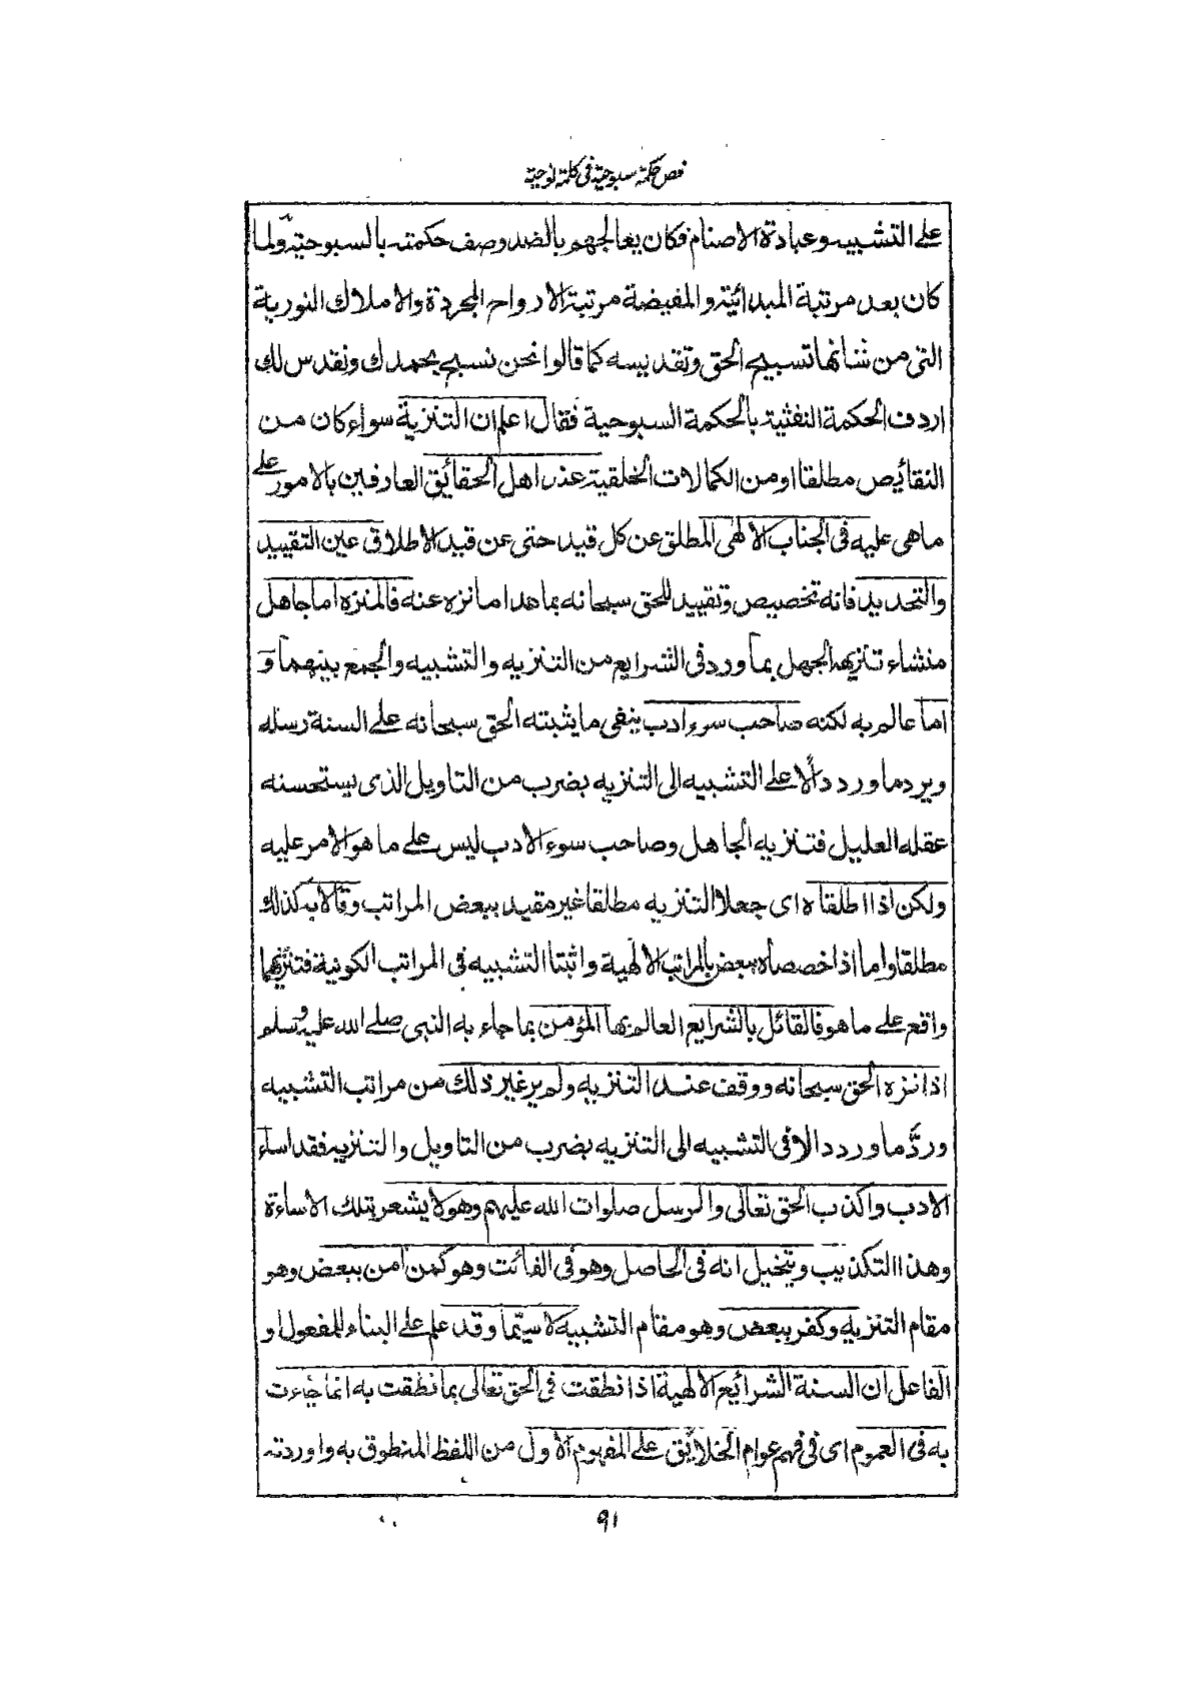 فص حكمة سبوحية فى كلمة نوحية
على التشبيه وعبادة الاصنام فكان يعالجهم بالضد وصف حكمته بالسبوحية ولما
كان بعد مرتبة المبدائية والمفيضة مرتبة الارواح المجردة والاملاك النورية
التى من شانها تسبيح الحق وتقديسه كما قالوا نحن نسبح بحمدك ونقدس لك
اردف الحكمة النفثية بالحكمة السبوحية فقال اعلم ان التنزية سواء كان من
النقائص مطلقا اومن الكمالات الخلقية عند اهل الحقائق العارفين بالامور على
ماهى عليه فى الجناب الالهى المطلق عن كل قيد حتى عن قيد الاطلاق عين التقييد
والتحديد فانه تخصيص وتقييد للحق سبحانه بماهدا مانزه عنه فالمنزه اما جاهل
منشاء تنزيهه الجهل بما ورد فى الشرايع من التنزيه والتشبيه والجمع بينهما و
اما عالم به لكنه صاحب سوء ادب ينفى مايثبته الحق سبحانه على السنة رسله
ويرد ما ورد دالا على التشبيه الى التنزيه بضرب من التاويل الذى يستحسنه
عقله العليل فتنزيه الجاهل وصاحب سوء الادب ليس على ما هو الامر عليه
ولكن اذا اطلقاه اى جعلا التنزيه مطلقا غير مقيد ببعض المراتب وقالا به كذلك
مطلقا واما اذا خصصاه ببعض المراتب الالهية واثبتا التشبيه فى المراتب الكونية فتنزيههما
واقع على ما هو فالقائل بالشرايع العالم بها المؤمن بما جاء به النبى صلى الله عليه وسلم
اذا نزه الحق سبحانه ووقف عند التنزيه ولم ير غير ذلك من مراتب التشبيه
وردّ ما ورد دالا فى التشبيه الى التنزيه بضرب من التاويل والتنزيه فقد اساء
الادب واكذب الحق تعالى والرسل صلوات الله عليهم وهو لا يشعر بتلك الاساءة
وهذا التكذيب ويتخيل انه فى الحاصل وهو فى الفائت وهو كمن امن ببعض وهو
مقام التنزيه وكفر ببعض وهو مقام التشبيه لا سيّما وقد علم على البناء للمفعول او
الفاعل ان السنة الشرائع الالهية اذا نطقت فى الحق تعالى بما نطقت به انما جاءت
به فى العموم اى فى فهم عوام الخلائق على المفهوم الاول من اللفظ المنطوق به واوردته
٩١